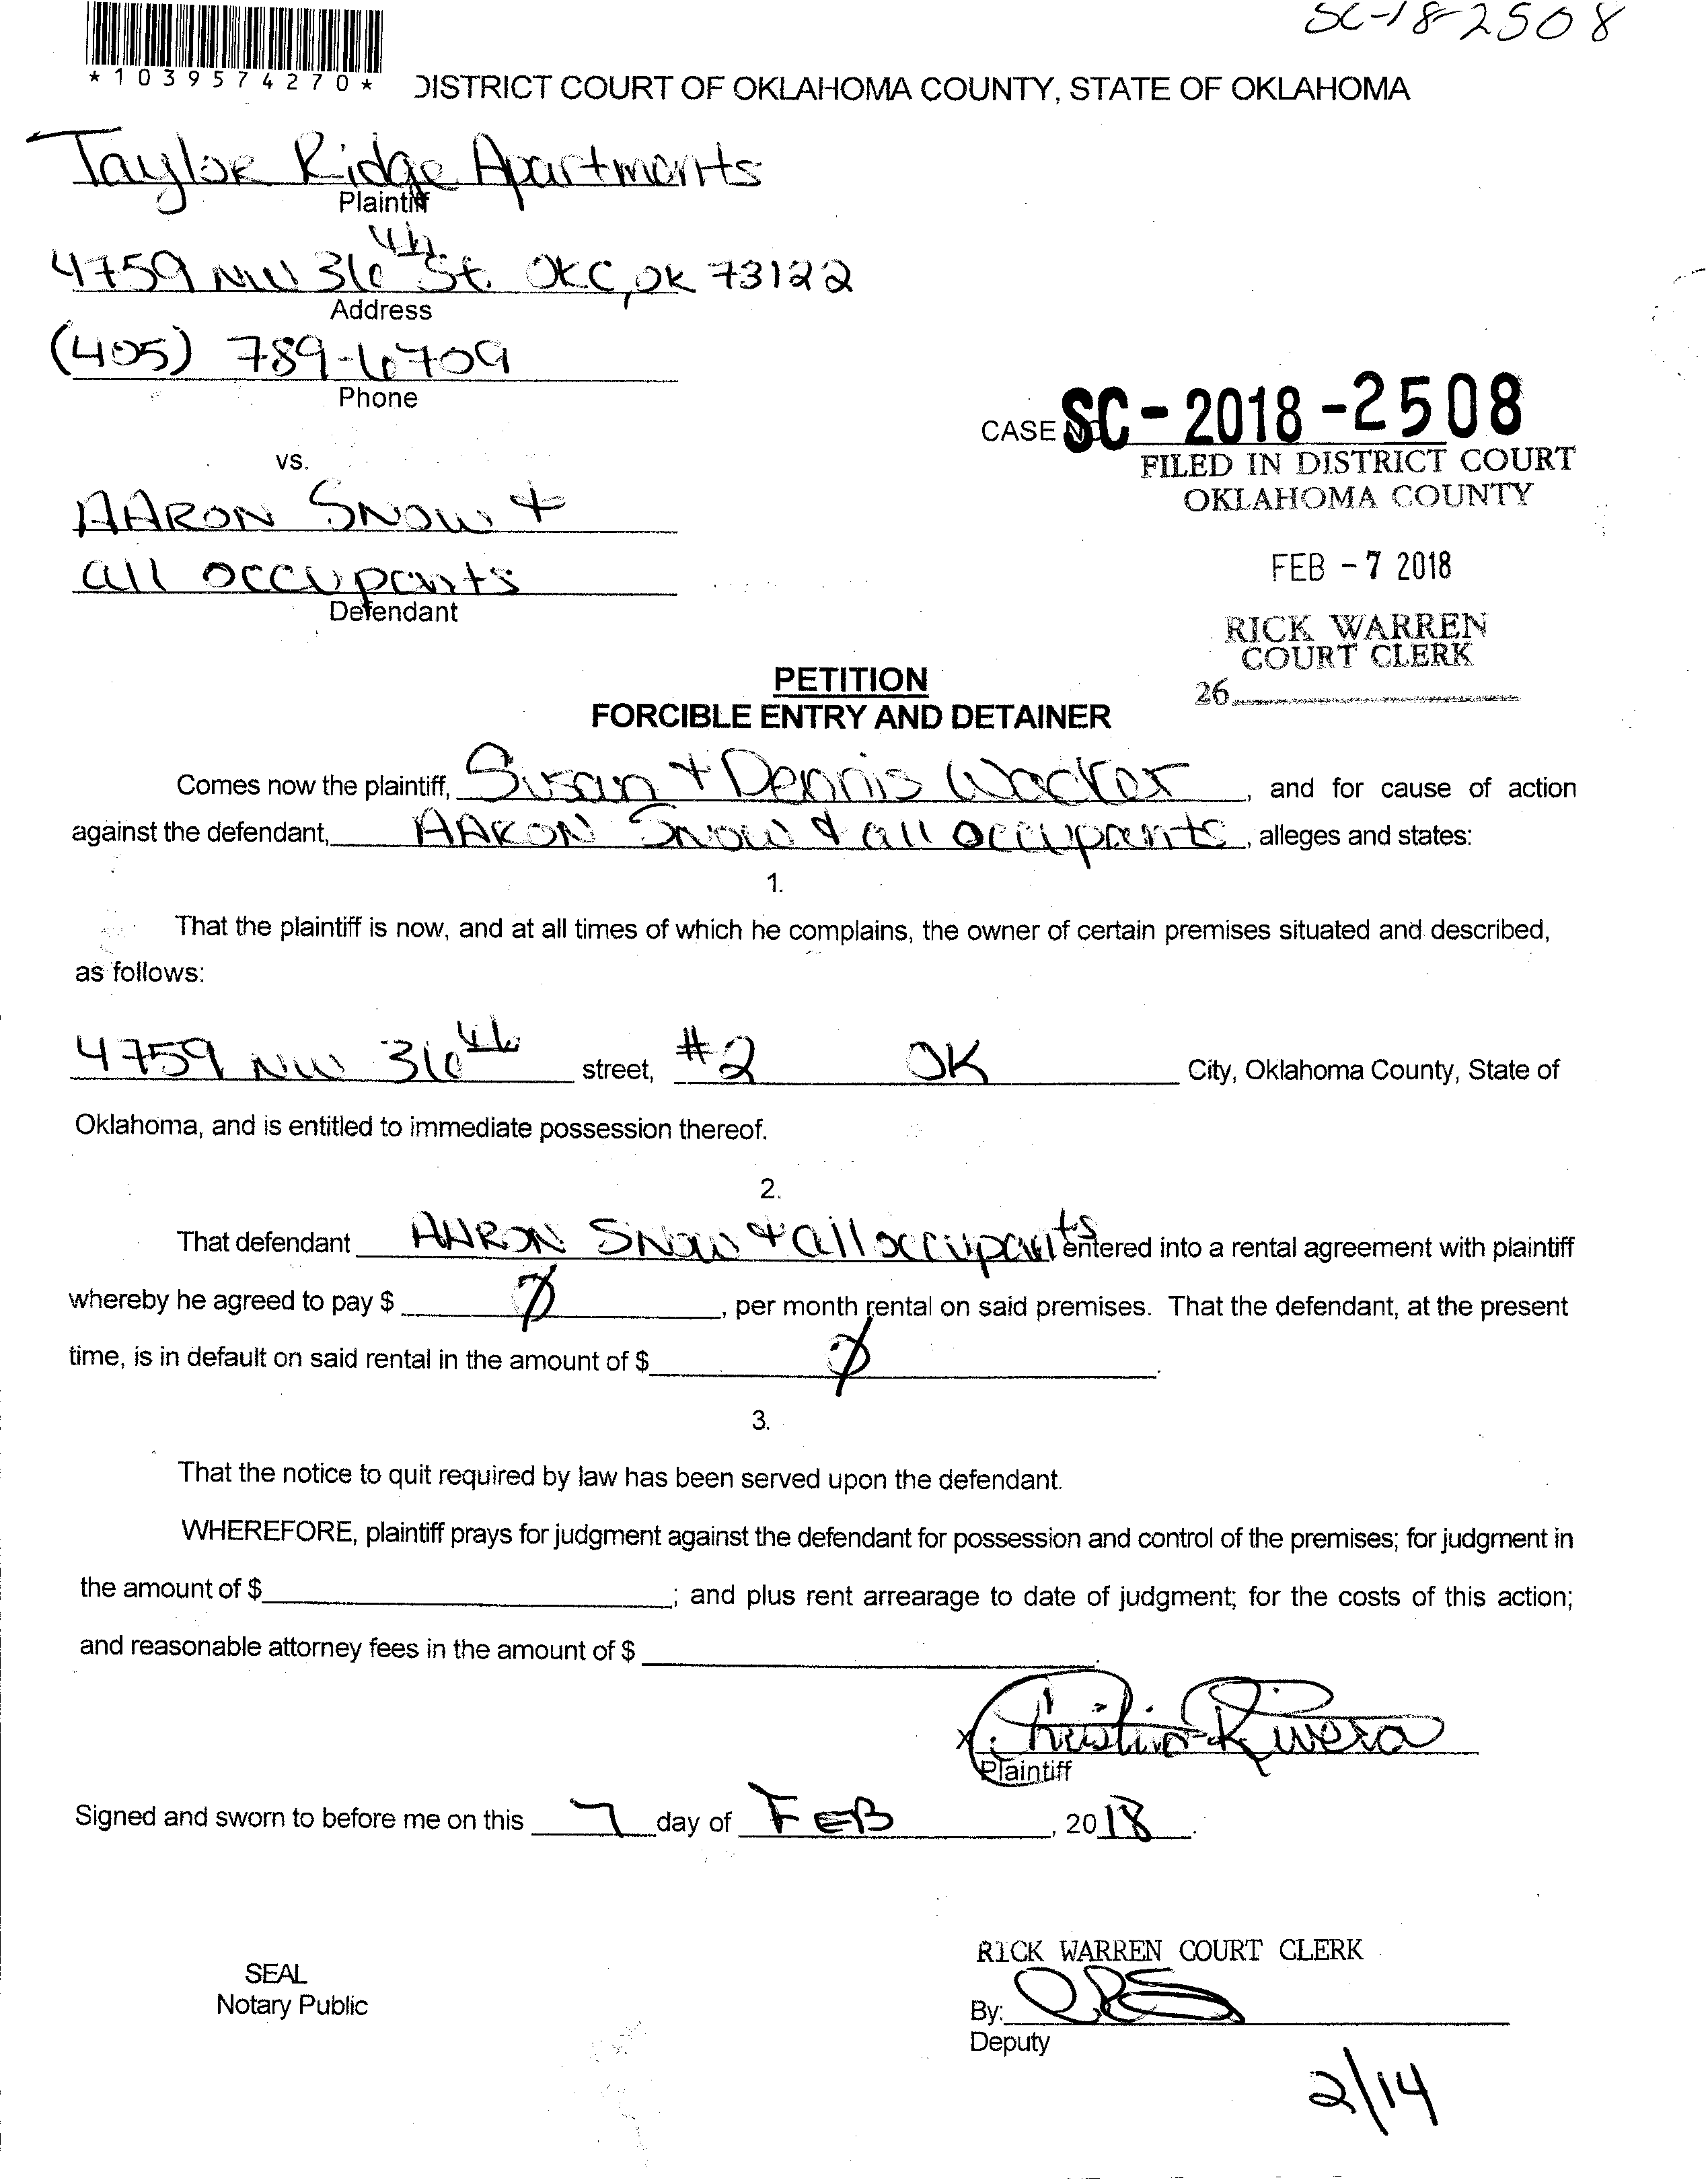 SC-18-2508
*1039574270*
DISTRICT COURT OF OKLAHOMA COUNTY, STATE OF OKLAHOMA
Taylor Ridge Apartments
Plaintiff
4759 NW 36th St. OKC, OK 73122
Address
(405) 789-6709
Phone
CASE NO. SC-2018-2508
FILED IN DISTRICT COURT
OKLAHOMA COUNTY
vs.
AARON SNOW +
all occupants
Defendant
FEB -7 2018
RICK WARREN
COURT CLERK
26
PETITION
FORCIBLE ENTRY AND DETAINER
Comes now the plaintiff, Susan + Dennis Wacker, and for cause of action
against the defendant, AARON Snow & all occupants, alleges and states:
1.
That the plaintiff is now, and at all times of which he complains, the owner of certain premises situated and described,
as follows:
4759 NW 36th street, #2 OK City, Oklahoma County, State of
Oklahoma, and is entitled to immediate possession thereof.
2.
That defendant AARON SNOW + all occupants entered into a rental agreement with plaintiff
whereby he agreed to pay $ 0, per month rental on said premises. That the defendant, at the present
time, is in default on said rental in the amount of $ 0.
3.
That the notice to quit required by law has been served upon the defendant.
WHEREFORE, plaintiff prays for judgment against the defendant for possession and control of the premises; for judgment in
the amount of $; and plus rent arrearage to date of judgment; for the costs of this action;
and reasonable attorney fees in the amount of $.
x Christina Rivera
Plaintiff
Signed and sworn to before me on this 7 day of FEB, 2018.
RICK WARREN COURT CLERK
SEAL
Notary Public
By:
Deputy
2/14